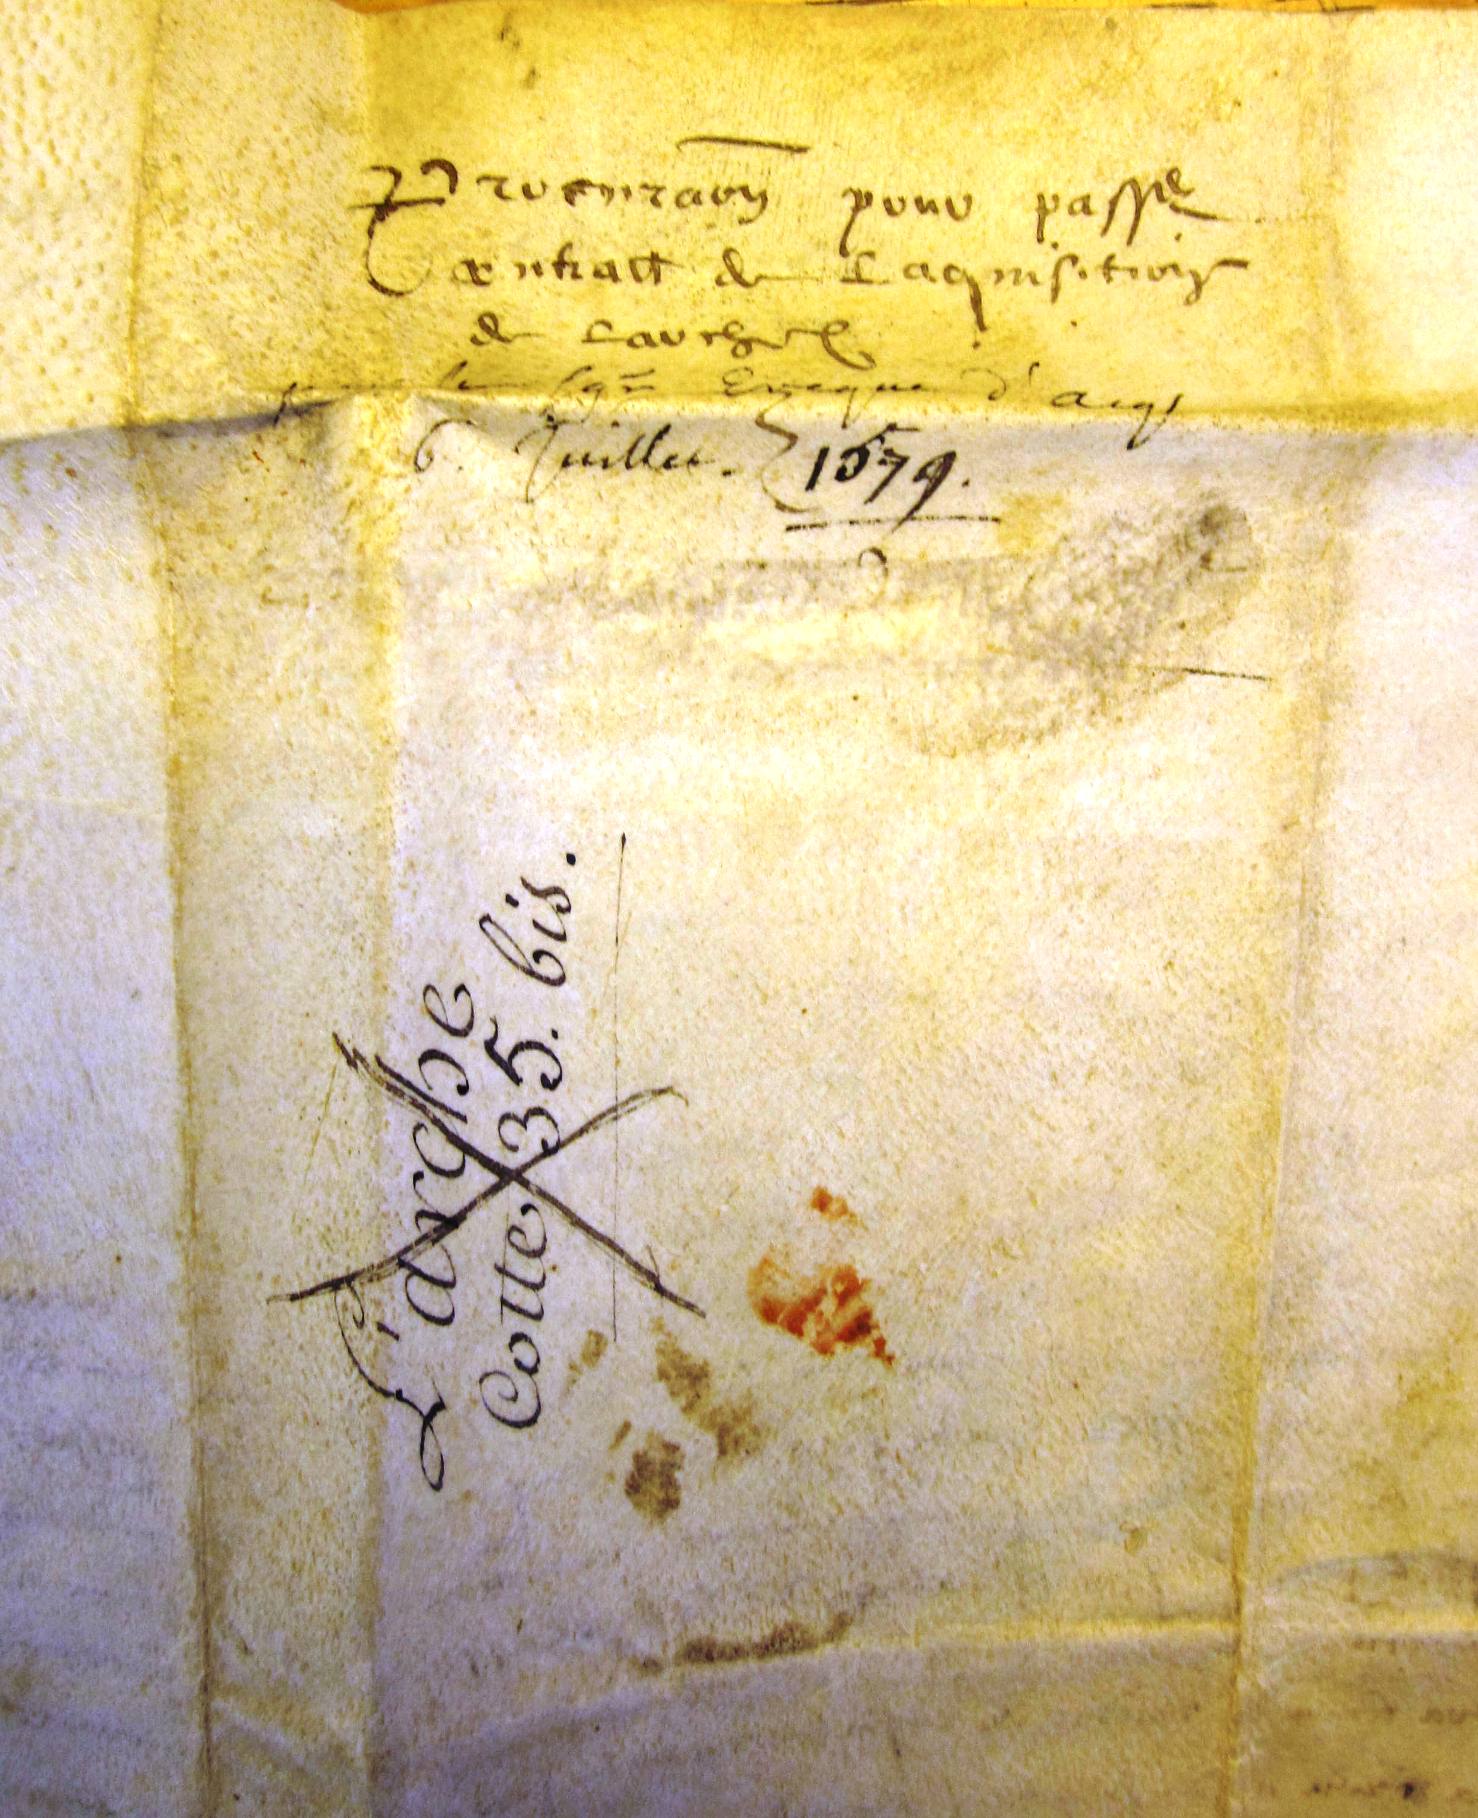 Procura͠on pour passe
Contract de Laquisition
de Larche
par le sgr Eveque d'acqs
6. Juillet. 1579.
L'arche
Cotte 35. bis.